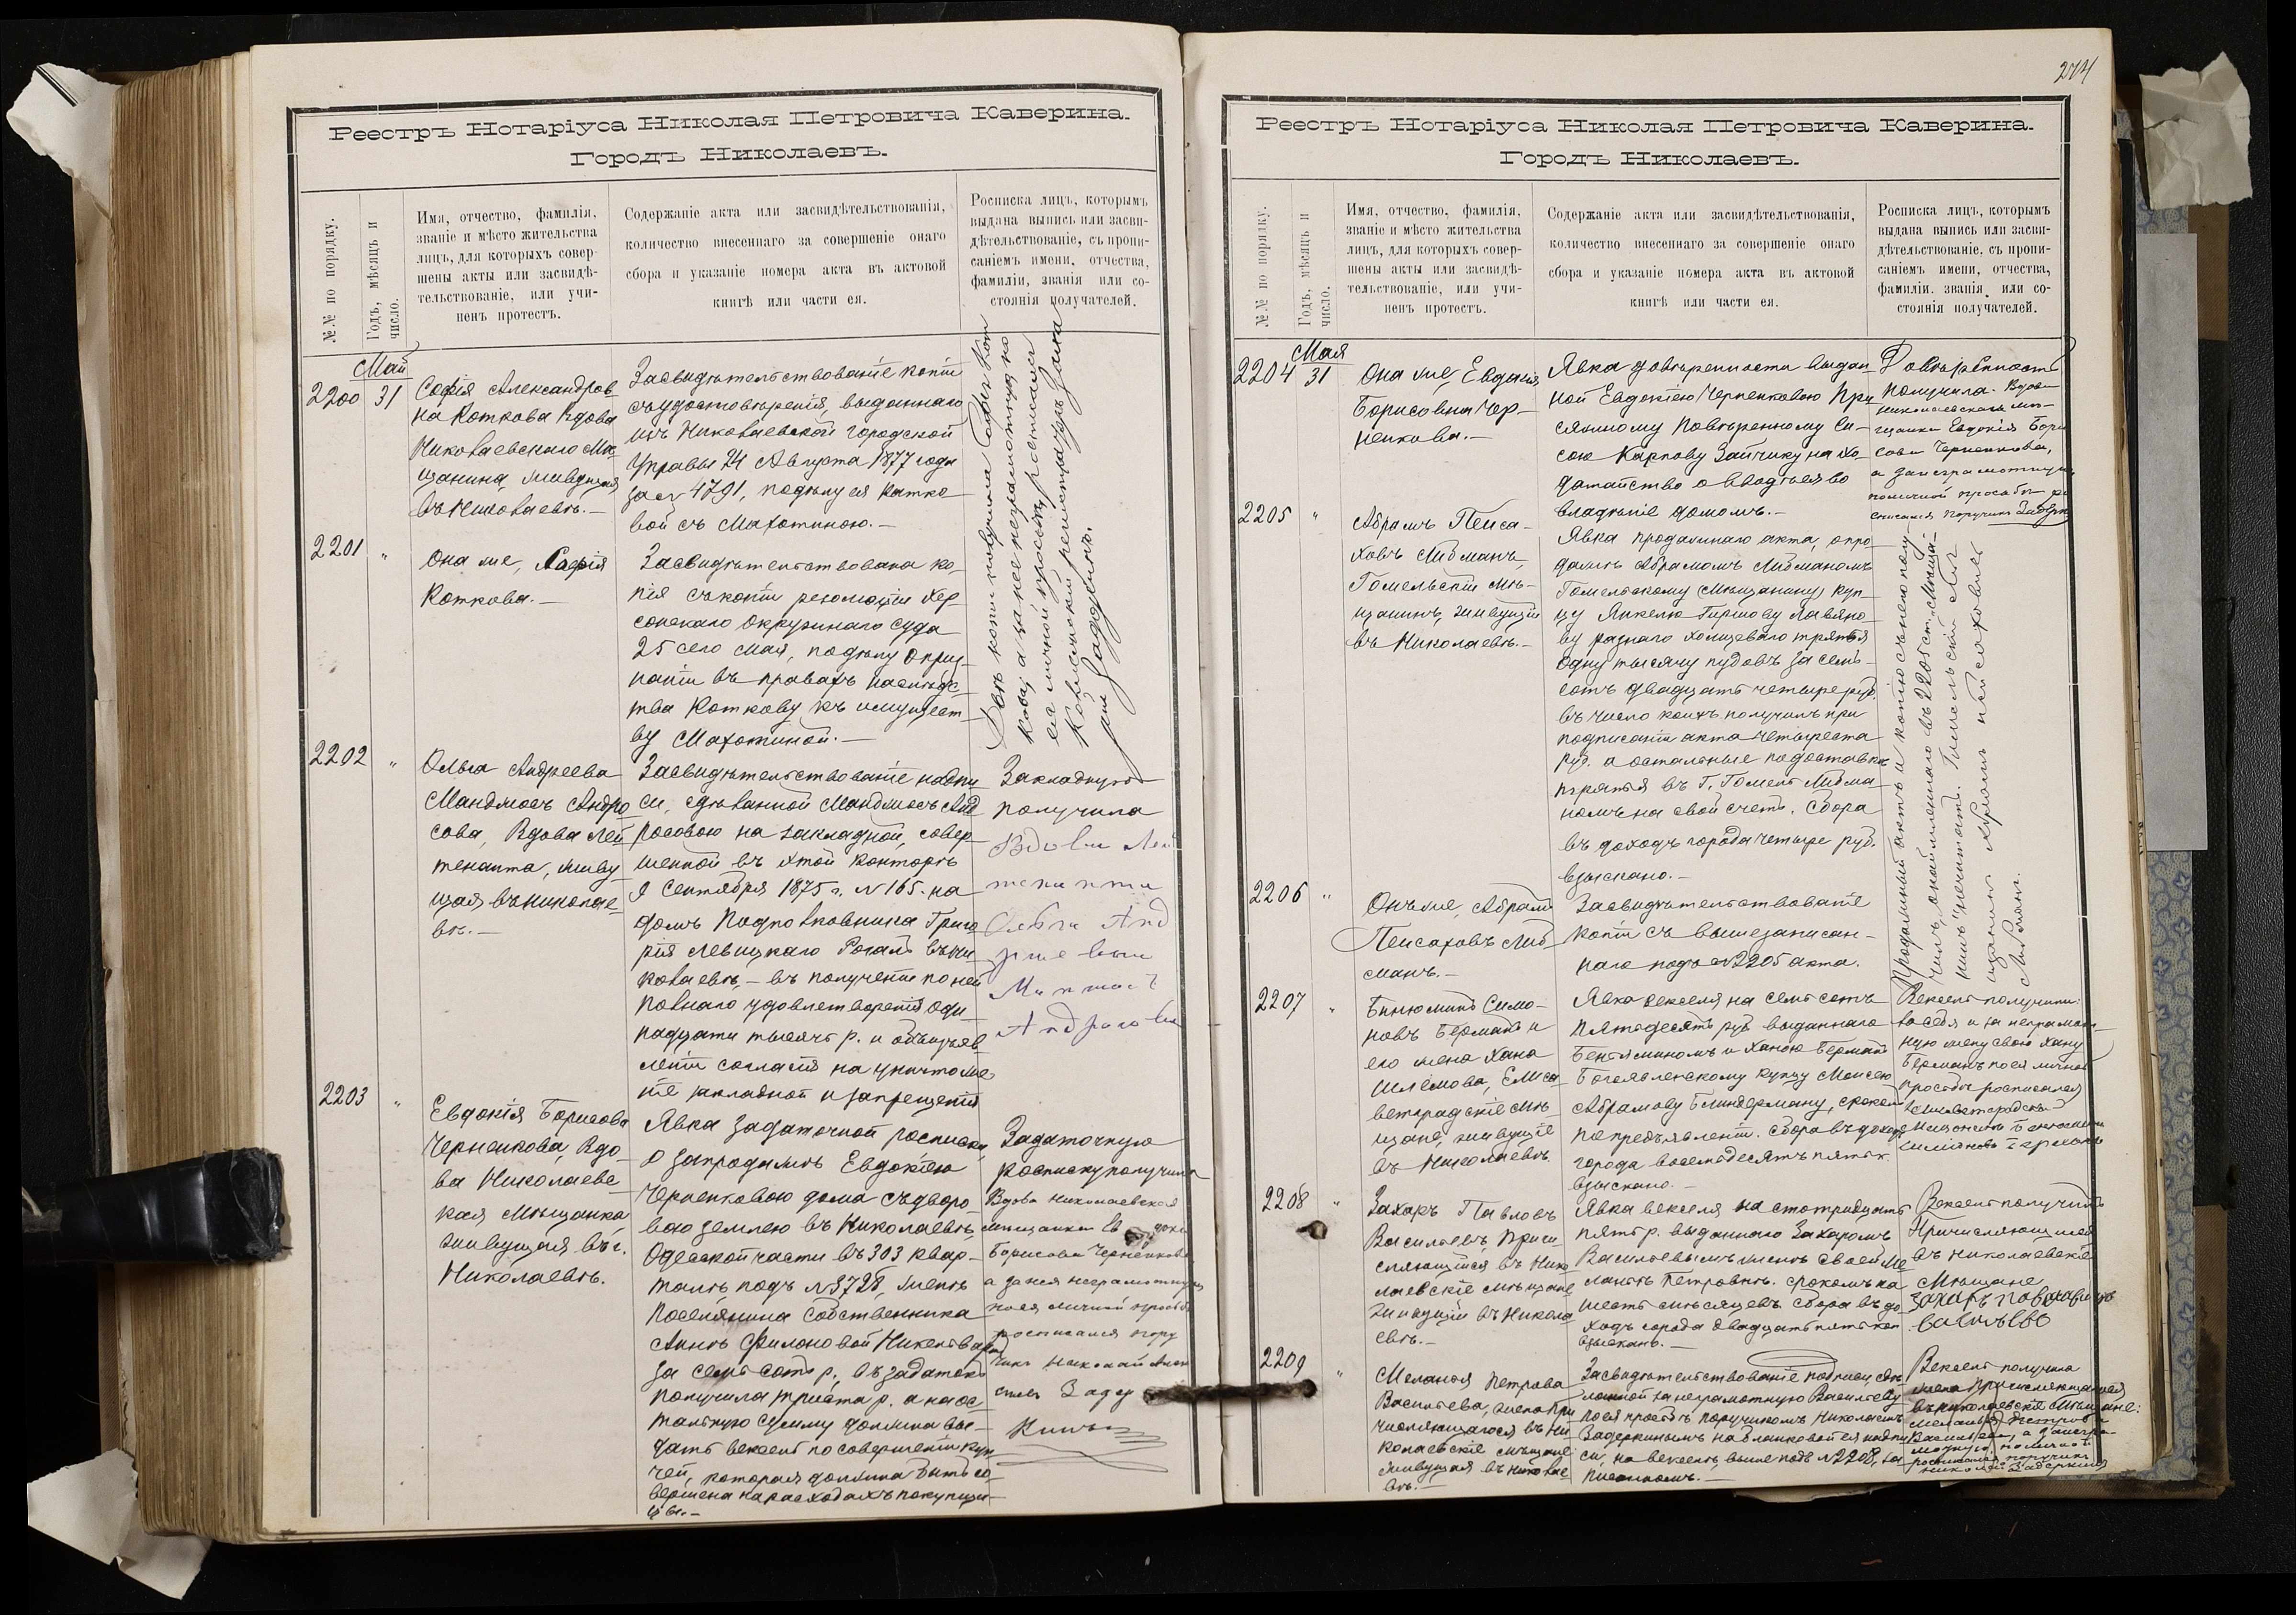 Реестръ Нотаріуса Николая Петровича Каверина.
Городъ Николаевъ.
№№ по порядку.
Годъ, мѣсяцъ и
число.
Имя, отчество, фамилія,
званіе и мѣсто жительства
лицъ, для которыхъ совер-
шены акты или засвидѣ-
тельствованіе, или учи-
ненъ протестъ.
Содержаніе акта или засвидѣтельствованія,
количество внесеннаго за совершеніе онаго
сбора и указаніе номера акта въ актовой
книгѣ или части ея.
Росписка лицъ, которымъ
выдана выпись или засви-
дѣтельствованіе, съ пропи-
саніемъ имени, отчества,
фамиліи, званія или со-
стоянія получателей.
Май
2200
31
Софія Александров
на Коткова Вдова
Николаевскаго Мѣ
щанина, живущая
въ Николаевѣ.-
Засвидѣтельствованіе копіи
съ удостовѣренія, выданнаго
изъ Николаевской Городской
Управы 24 Августа 1877 года
за № 4791, по дѣлу ея Котко
вой съ Махотиною.-
2201
"
Она же, Софія
Коткова.-
Засвидѣтельствована ко-
пія съ копіи резолюціи Хер
сонскаго Окружнаго Суда
25 сего Мая, по дѣлу о приз-
наніи въ правахъ наслѣдс-
тва Коткову къ имущест-
ву Махотиной.-
Двѣ копіи получила Софія Кот
кова, а за нее неграмотную по
ея личной просьбѣ росписался
2202
"
Ольга Андреева
Мандмосъ Андро
сова, Вдова Лей
тенанта, живу-
щая въ Николае-
вѣ.-
Засвидѣтельствованіе надпи
си, сдѣланной Мандмосъ Анд
росовою на закладной, совер-
шенной въ этой конторѣ
9 Сентября 1875 г. № 165. на
домъ Подполковника Григо
рія Левицкаго Рогаль въ Ни
колаевѣ,- въ полученіи по ней
полнаго удовлетворенія оди
надцати тысячъ р. и объизъяв
леніи согласія на уничтоже
ніе закладной и запрещенія
Закладную
получила
Вдова Лей
тенанта
Ольга Анд
реевна
Андросова
2203
"
Евдокія Борисова
Черненкова, Вдо-
ва Николаевс-
кая Мѣщанка,
живущая въ г.
Николаевѣ.
Явка задаточной росписки,
о запродажѣ Евдокіею
Черненковою дома съ дворо-
вою землею въ Николаевѣ,
Одесской части въ 303 квар-
талѣ подъ № 3728, женѣ
Поселянина Собственника
Аннѣ Филоновой
за семь сотъ р., въ задатокъ
получила триста р. а на ос-
тальную сумму должна вы-
дать вексель по совершеніи куп
чей, которая должна быть со-
вершена на расходахъ покупщи-
цы.-
Задаточную
росписку получила
Вдова Николаевская
мѣщанка Евдокія
Борисова Черненкова
а за нея неграмотную
по ея личной просьбѣ
росписался пору
чикъ Николай
Задер
кинъ
274
Реестръ Нотаріуса Николая Петровича Каверина.
Городъ Николаевъ.
№№ по порядку.
Годъ, мѣсяцъ и
число.
Имя, отчество, фамилія,
званіе и мѣсто жительства
лицъ, для которыхъ совер-
шены акты или засвидѣ-
тельствованіе, или учи-
ненъ протестъ.
Содержаніе акта или засвидѣтельствованія,
количество внесеннаго за совершеніе онаго
сбора и указаніе номера акта въ актовой
книгѣ или части ея.
Росписка лицъ, которымъ
выдана выпись или засви-
дѣтельствованіе, съ пропи-
саніемъ имени, отчества,
фамиліи, званія или со-
стоянія получателей.
Мая
2204
31
Она же, Евдокія
Борисовна Чер-
ненкова.-
Явка довѣренности выдан
ной Евдокіею Черненковою При
сяжному Повѣренному Си-
сою Карпову Зайчику на хо-
датайство о вводѣ ея во
владѣніе домомъ.-
Довѣренность
получила Вдова
Николаевская мѣ-
щанка Евдокія Бори
сова Черненкова,
а за неграмотную
по личной просьбѣ ро
списался поручикъ
2205
"
Абрамъ Пейса-
ховъ Либманъ,
Гомельскій Мѣ-
щанинъ, живущій
въ Николаевѣ.-
Явка продажнаго акта, о про
дажѣ Абрамомъ Либманомъ
Гомельскому Мѣщанину, куп-
цу Янкелю Гиршову
ву разнаго холщеваго тряпья
одну тысячу пудовъ за семь-
сотъ двадцать четыре руб.
въ число коихъ получилъ при
подписаніи акта четыреста
руб. а остальные по доставкѣ
тряпья въ г. Гомель Либма
номъ на свой счетъ. Сбора
въ доходъ города четыре руб.
взыскано.-
2206
"
Онъ же, Абрамъ
Пейсаховъ Либ-
манъ.-
Засвидѣтельствованіе
копіи съ вышезаписан-
наго подъ № 2205 акта.
Продажный актъ и копію съ него полу
Либманъ.
2207
"
Биньюминъ Симо-
новъ Берманъ и
его жена Хана
Шлемова, Елиса
ветградскіе Мѣ-
щане, живущіе
въ Николаевѣ.
Явка векселя на семь сотъ
пятьдесятъ руб. выданнаго
Беньяминомъ и Ханою Берманъ
Богоявленскому купцу Моисею
Абрамову Блиндерману, срокомъ
по предъявленіи. Сбора въ доходъ
города восемьдесятъ пять к.
взыскано.-
Вексель получили:
за себя и за неграмот-
ную жену свою Хану
Берманъ по ея личной
просьбѣ росписался
Елисаветградскій
2208
"
Захаръ Павловъ
Васильевъ, Причи
сляющійся въ Нико
лаевскіе мѣщане
живущій въ Никола
евѣ.-
Явка векселя на сто тридцать
пять р. выданнаго Захаромъ
Васильевымъ женѣ своей Ме
ланьѣ Петровнѣ. срокомъ на
шесть мѣсяцевъ. Сбора въ до
ходъ города двадцать пять коп
взысканъ.-
Вексель получилъ
Причисляющійся
въ Николаевскіе
Мѣщане
2209
"
Меланья Петрова
Васильева, жена При
числяющагося въ Ни
колаевскіе мѣщане
живущая въ Николае
вѣ.-
Засвидѣтельствованіе подписи сдѣ
ланной за неграмотную Васильеву
по ея просьбѣ поручикомъ Николаемъ
Задеркинымъ на бланковой ея надпи
си, на векселѣ, выше подъ № 2208, за
писанномъ.-
Вексель получила
жена Причисляющагося
въ Николаевскіе Мѣщане:
Меланья Петрова
Васильева, а за негра-
мотную по личной
росписался поручикъ
Николай Задеркинъ